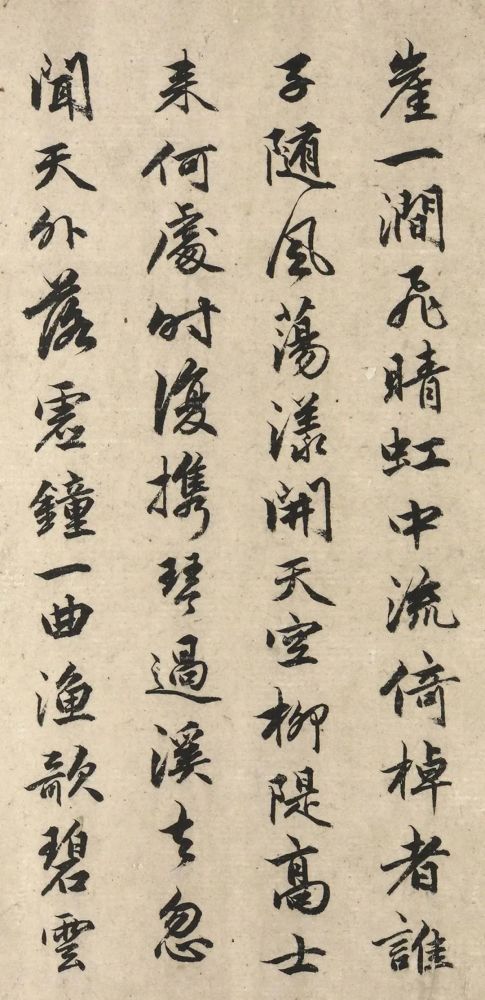 崖一澗飛晴虹中流倚棹者誰
子随風蕩漾開天空柳隄高士
来何處時復携琴過溪去忽
聞天外落雲鐘一曲漁歌碧雲